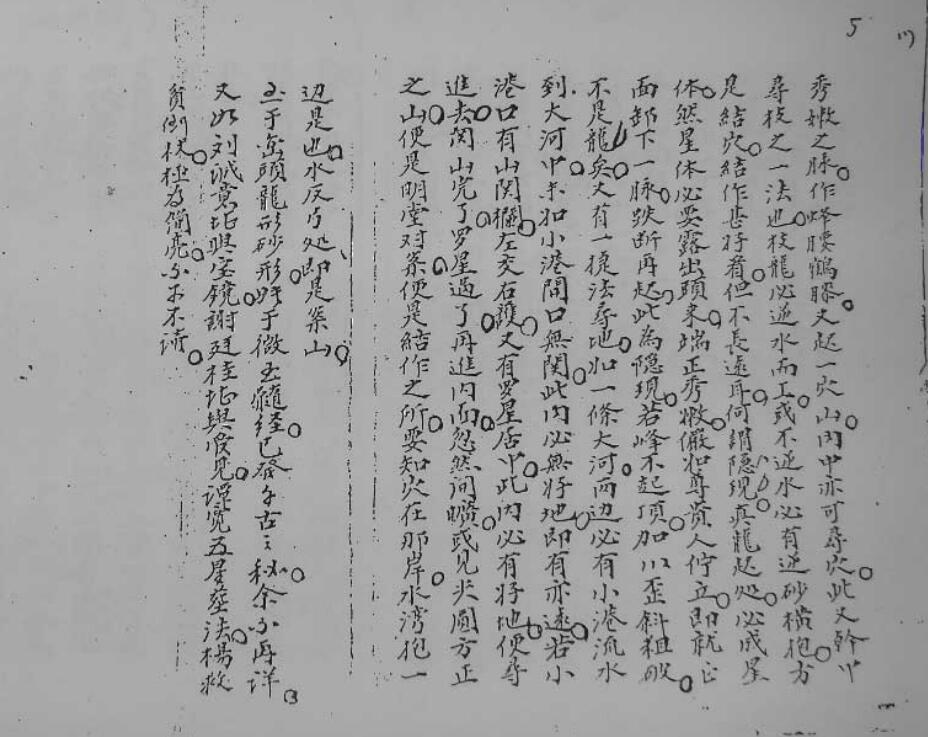 5
秀嫩之脉。作蜂腰鶴膝。又起一穴山。内中亦可尋穴。此又幹中
尋枝之一法也。枝龍必逆水而上。或不逆水。必有逆砂横抱。方
是結穴。結作甚好看。但不長遠耳。何謂隐現。真龍起処。必成星
体。然星体必要露出頭来。端正秀嫩。儼如尊貴人佇立。即就正
面卸下一脉。跌断再起。此為隐現。若峰不起頂。加以歪斜粗破。
不是龍矣。又有一捷法尋地。如一條大河。两边必有小港流水
到大河中来。如小港開口無関。此内必無好地。即有亦遠。若小
港口有山関欄。左交右護。又有罗星居中。此内必有好地。便尋
進去。関山完了。罗星過了。再進内面。忽然间曠。或见尖圓方正
之山。便是明堂对案。便是結作之所。要知穴在那岸。水湾抱一
辺是也。水反弓処即是案山。
至于巒頭龍形砂形。好于微玉髓経。已啓千古之秘。余不再详。
又如刘诚意地與宝鏡。謝廷柱地與履见。谭宽五星葬法。楊救
貧倒杖。極為簡亮。不可不请。